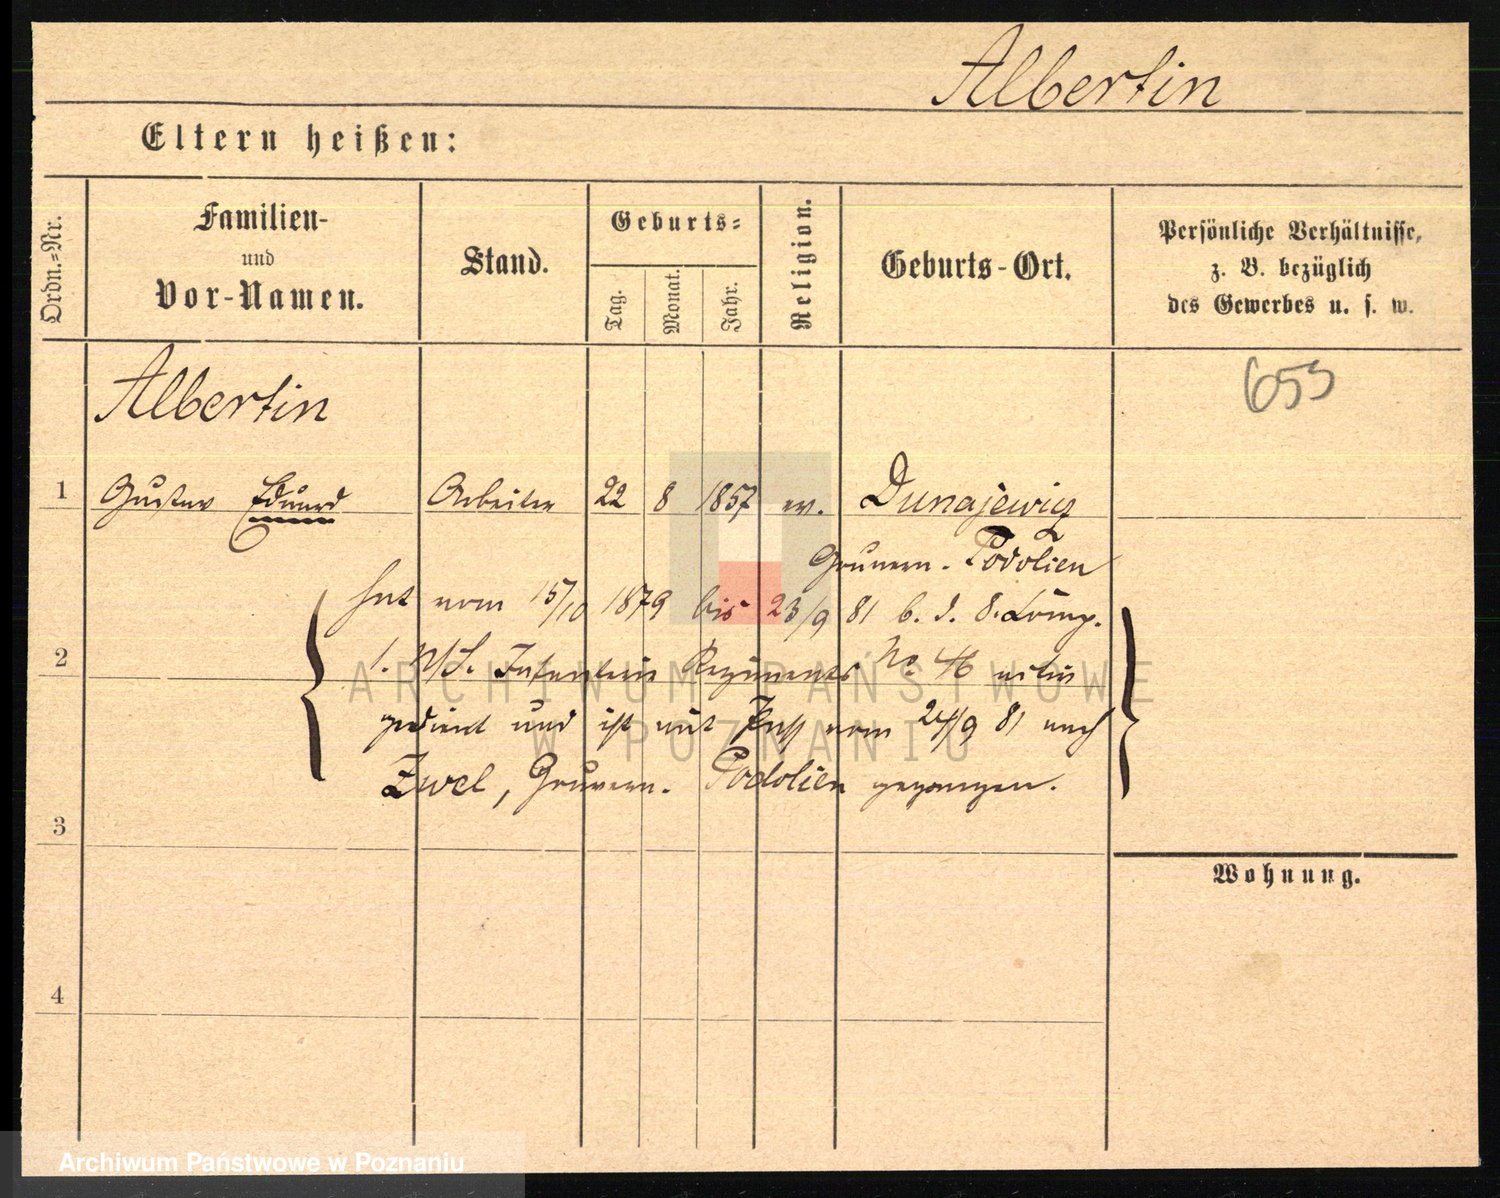 Albertin
Eltern heißen:
Ordn.-Nr.
Familien-
und
Vor-Namen.
Stand.
Geburts-
Tag.
Monat.
Jahr.
Religion.
Geburts-Ort.
Persönliche Verhältnisse,
z. B. bezüglich
des Gewerbes u. s. w.
Albertin
653
1 Gustav Eduard Arbeiter 22 8 1857 ev. Dunajewicz
Gouvern. Podolien
hat vom 15/10 1879 bis 23/9 81 b. d. 8. Comp.
2
1. N/S. Infanterie Regiments No. 46 activ
gedient und ist mit Paß vom 24/9 81 nach
Zwel, Gouvern. Podolien gegangen.
3
Wohnung.
4
ARCHIWUM PAŃSTWOWE
W POZNANIU
Archiwum Państwowe w Poznaniu